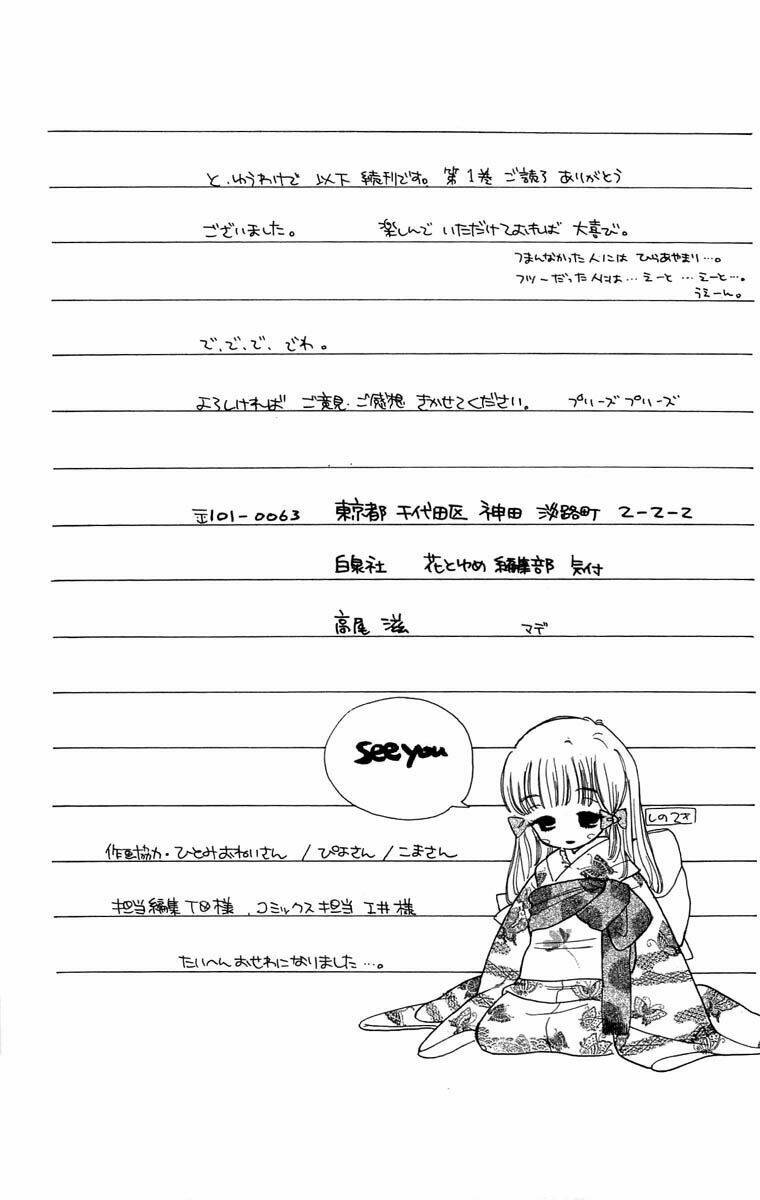 と、ゆうわけで 以下 続刊です。 第1巻 ご読了 ありがとう
ございました。 楽しんで いただけておれば 大喜び。
つまんなかった人には ひらあやまり…。
フツーだった人には… えーと … えーと…。
うえーん。
で、で、で、でわ。
よろしければ ご意見・ご感想 きかせてください。 プリーズ プリーズ
〒101-0063 東京都 千代田区 神田 淡路町 2-2-2
白泉社 花とゆめ 編集部 気付
高尾 滋 マデ
see you
しのてさ
作画協力・ひとみおねいさん / ぴよさん / こまさん
担当編集 様、コミックス担当 工井 様
たいへん おせわになりました…。